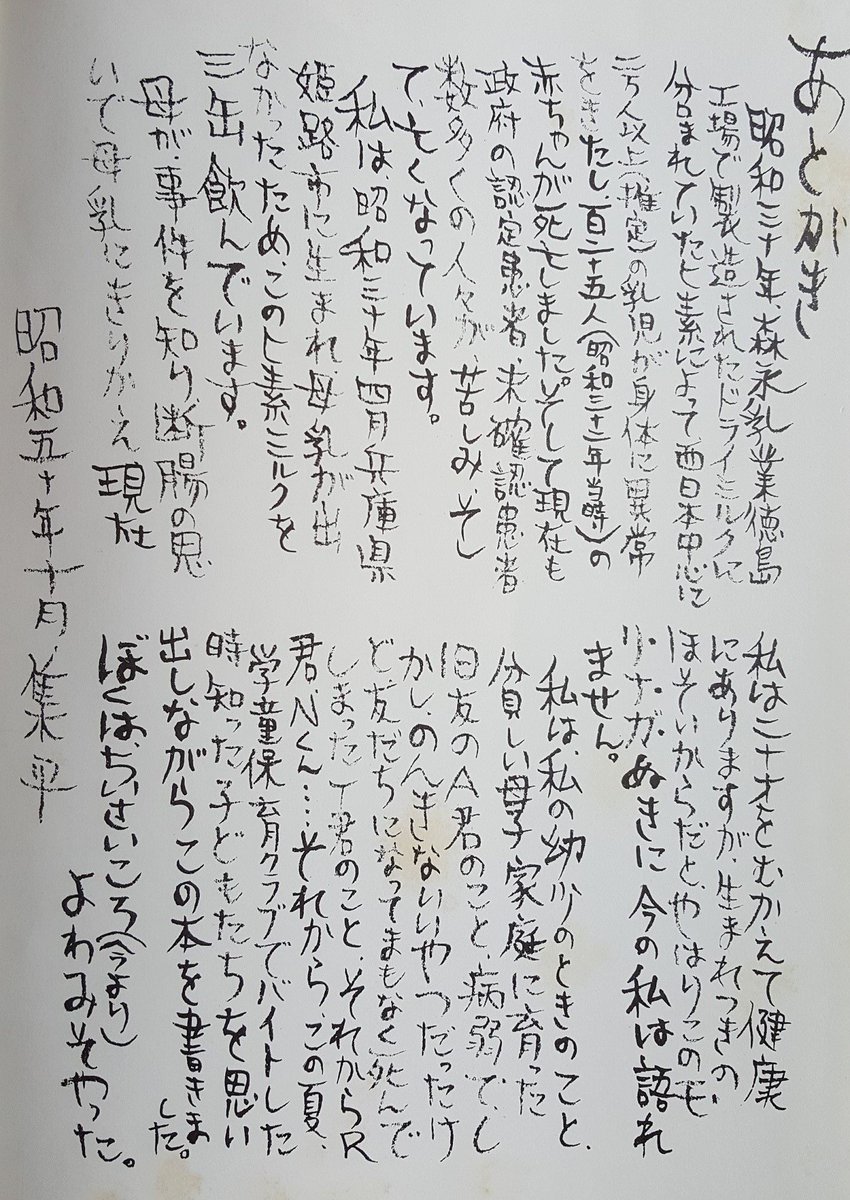 あとがき
昭和三十年、森永乳業徳島
工場で製造されたドライミルクに
含まれていたヒ素によって、西日本中心に
二万人以上（推定）の乳児が身体に異常
をきたし、百二十五人（昭和三十二年当時）の
赤ちゃんが死亡しました。そして現在も
政府の認定患者、未確認患者
数多くの人々が、苦しみ、そし
て、亡くなっています。
私は、昭和三十年四月兵庫県
姫路市に生まれ母乳が出
なかったため、このヒ素ミルクを
三缶飲んでいます。
母が、事件を知り、断腸の思
いで母乳にきりかえ現在
私は二十才をむかえて健康
にありますが、生まれつきの、
ほそいからだと、やはりこのモ
リナガ、ぬきに今の私は語れ
ません。
私は、私の幼少のときのこと、
貧しい母子家庭に育った
旧友のA君のこと、病弱で、し
かし、のんきないいやつだったけ
ど、友だちになってまもなく死んで
しまったT君のこと、それからR
君、Nくん……それから、この夏、
学童保育クラブでバイトした
時知った子どもたちを思い
出しながらこの本を書きました。
ぼくは、ちいさいころ（今より）
よわみそやった。
昭和五十年十月、集平